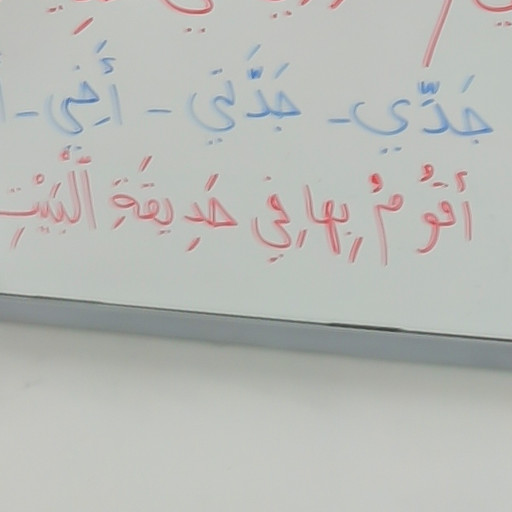 جَدِّي - جَدَّتِي - أَخِي -
أَقُومُ بِهَا فِي حَدِيقَةِ الْبَيْتِ